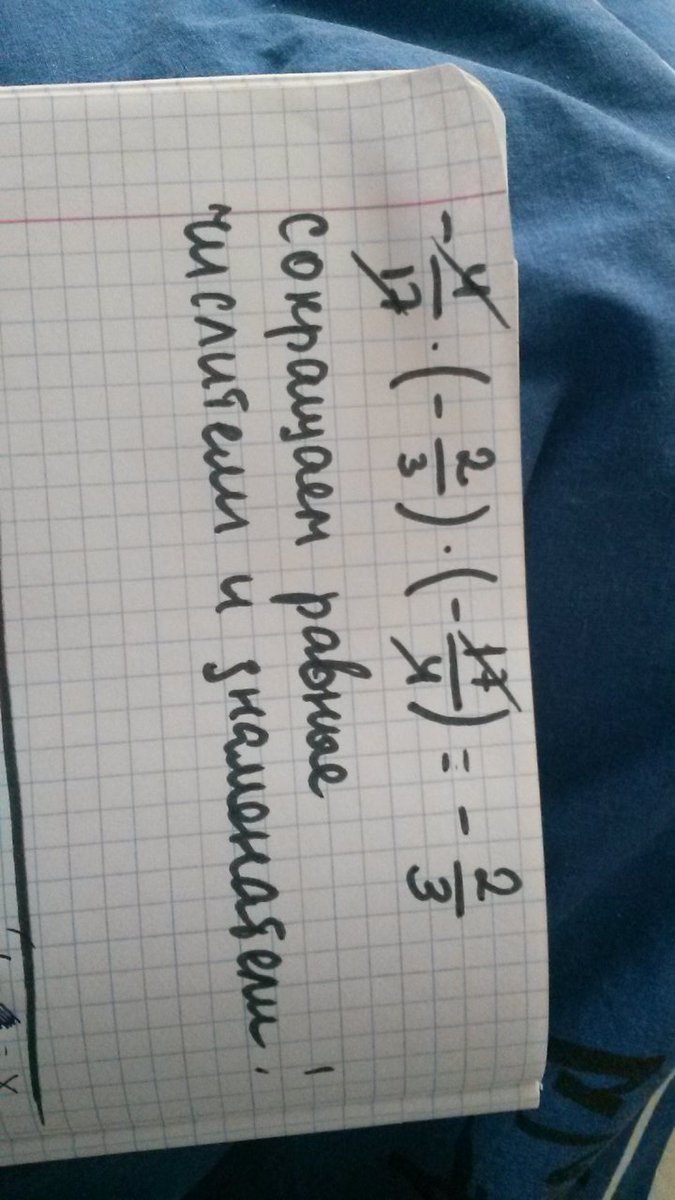 - 4/17 · (- 2/3) · (- 17/4) = - 2/3
сокращаем равные
числители и знаменатели.